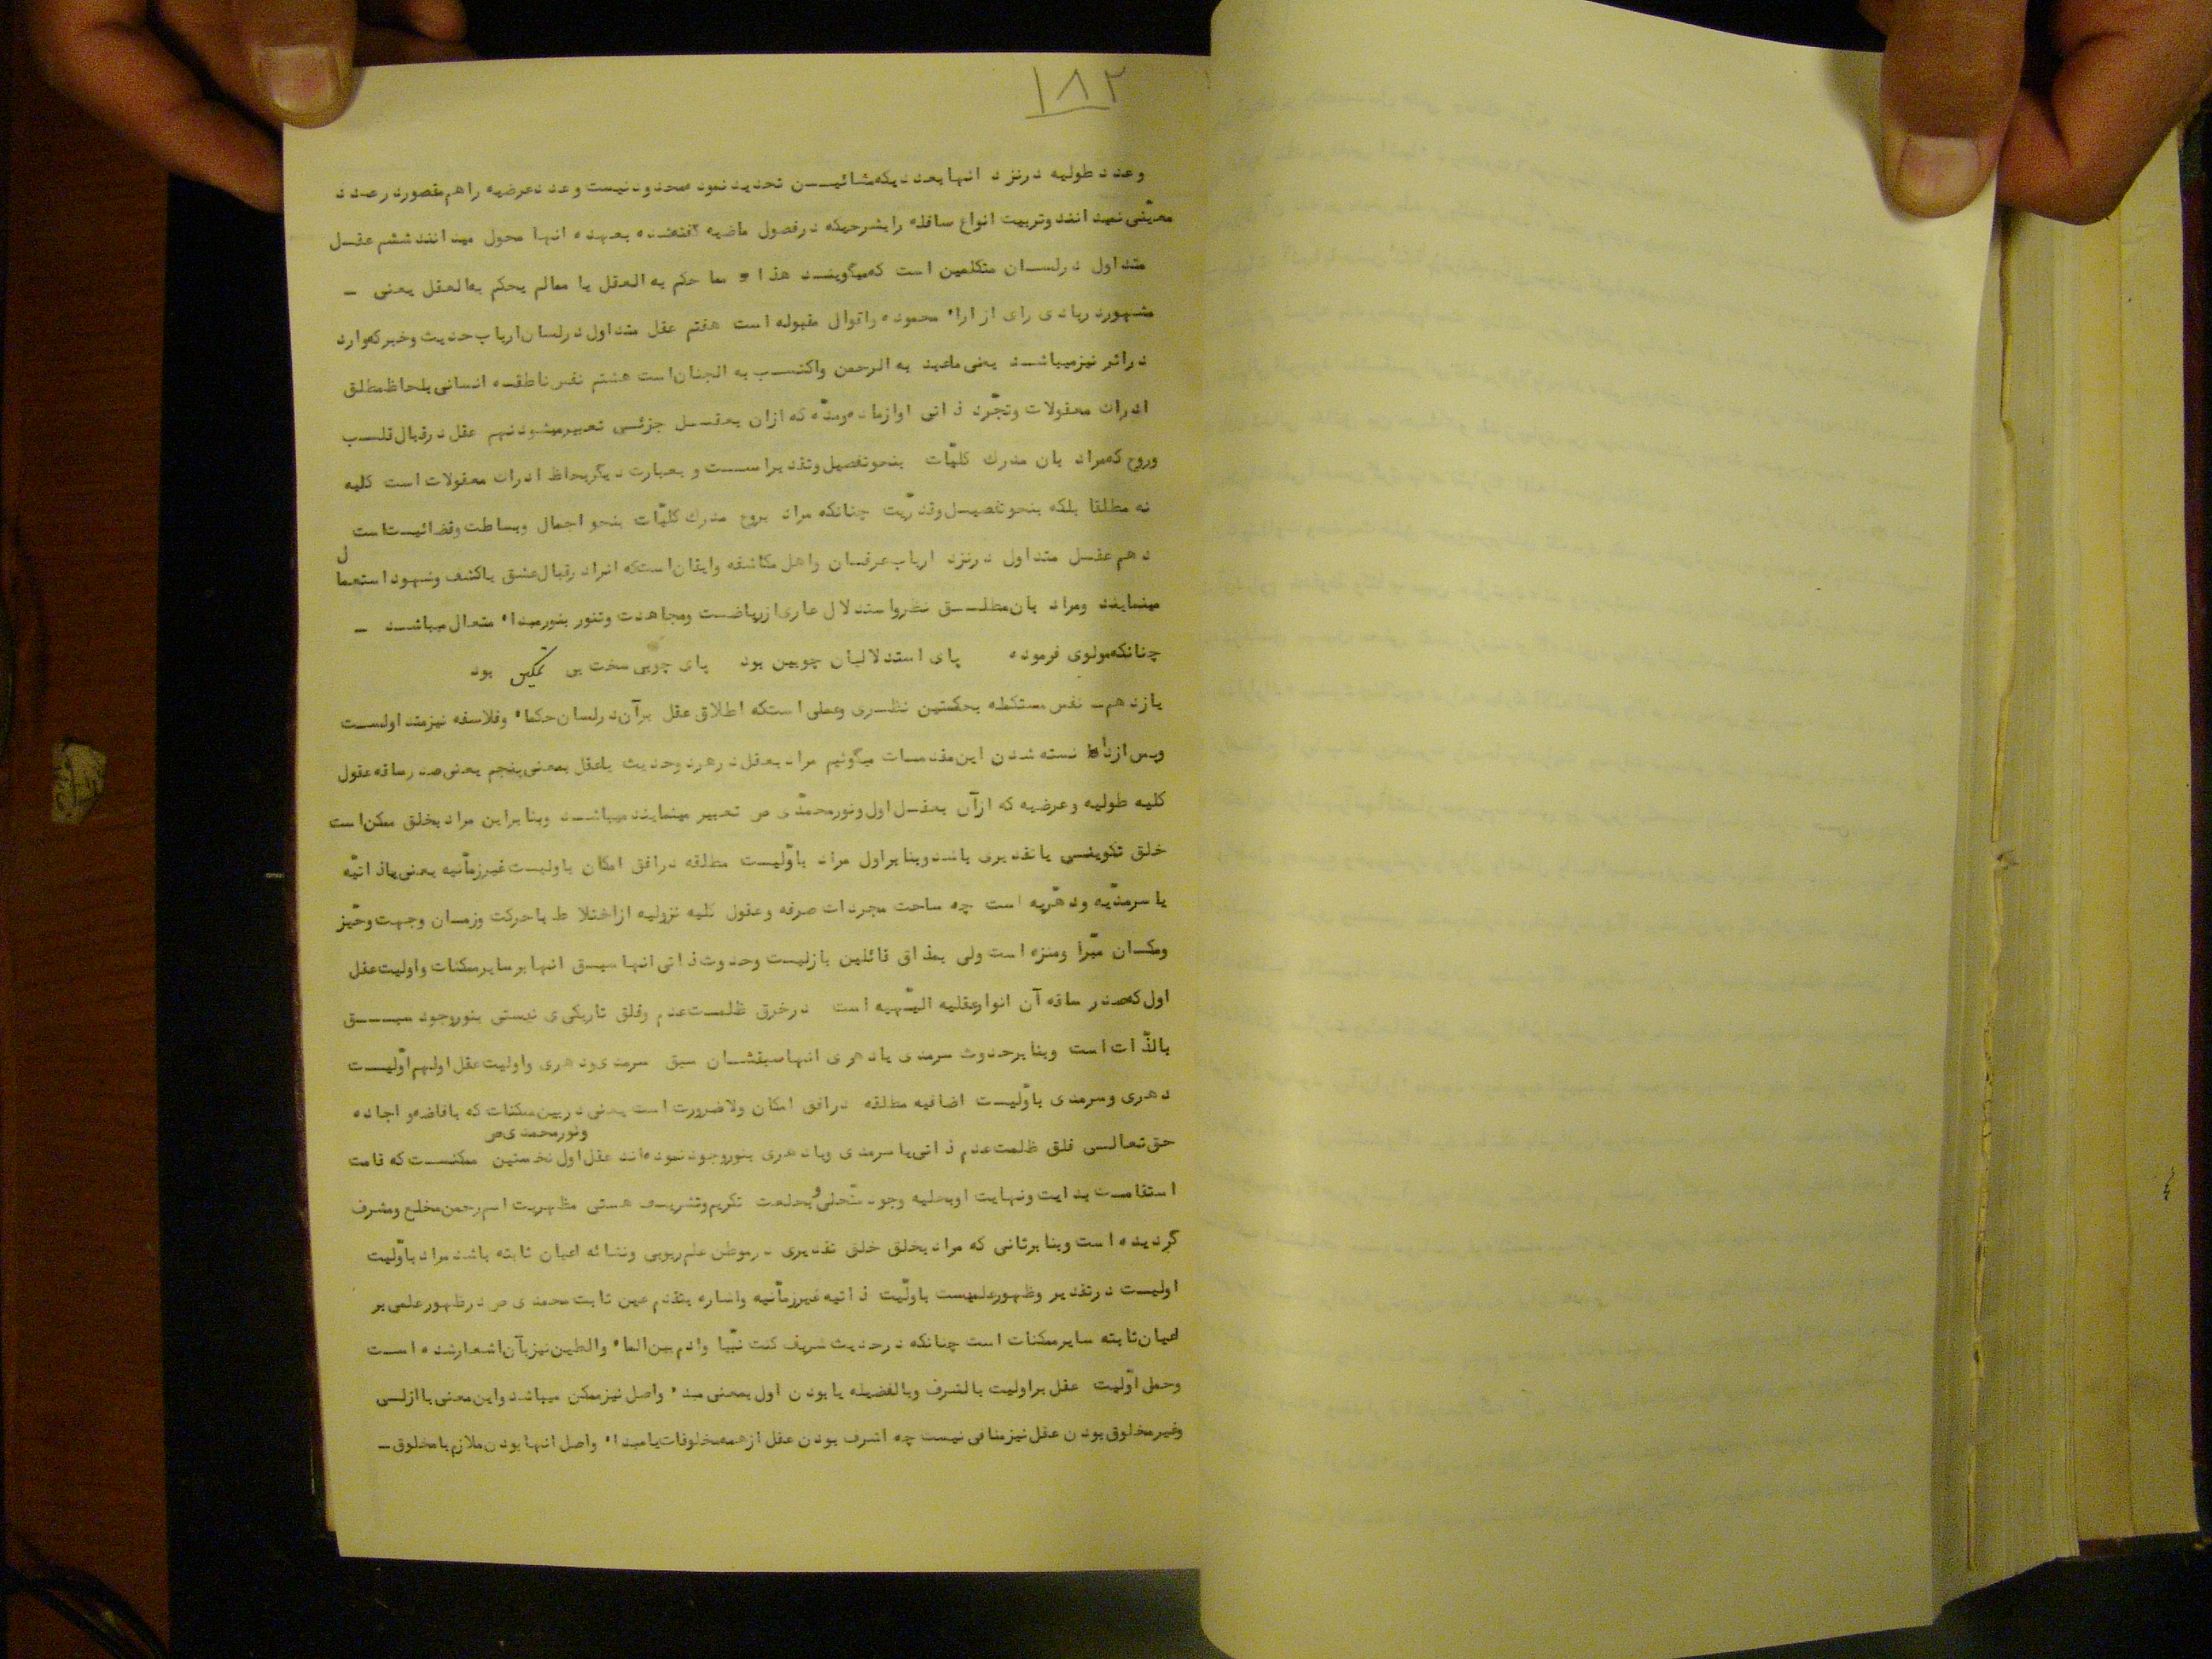 ۱۸۲
وعدد طولیه درنزد انها بعددیکه مشائیـن تحدید نموده محدود نیست وعدد عرضیه راهم مقصور در عدد
معیّنی نمیدانند وتربیت انواع سافله را بشرحیکه در فصول ماضیه گفته شده بعهده انها محول میدانند ششم عقـل
متداول درلسـان متکلمین است که میگوینـد هذا مما حکم به العقل یا ممالم یحکم به العقل یعنی ـ
مشهور در بادی رای از اراء محموده واقوال مقبوله است هفتم عقل متداول درلسان ارباب حدیث وخبر که وارد
دراثر نیز میباشـد یعنی ماعبد به الرحمن واکتسـب به الجنان است هشتم نفس ناطقـه انسانی بلحاظ مطلق
ادراك معقولات وتجّرد ذاتی اوازماده ومدّه که ازان بعقـل جزئـی تعبیر میشود نهم عقل درقبال قلـب
وروح که مراد بان مدرك کلیّات بنحو تفصیل وتقدیر اسـت و بعبارت دیگر بحاظ ادراك معقولات است کلیه
نه مطلقا بلکه بنحو تفصیـل وقدرّیت چنانکه مراد بروح مدرك کلیّات بنحو اجمال وبساطت وقضائیـت است
دهم عقـل متداول درنزد ارباب عرفـان واهل مکاشفه وایقان است که انرا درقبال عشق یاکشف وشهود استعمال
مینمایند ومراد بان مطلـق نظرواستدلال عاری از ریاضـت ومجاهدت وتنور بنور مبداء متعال میباشـد ـ
چنانکه مولوی فرموده پای استدلالیان چوبین بود پای چوبین سخت بی تمکین بود
یازدهم ـ نفس مستکمله بحکمتین نظـری وعملی است که اطلاق عقل برآن درلسان حکماء وفلاسفه نیزمتداولسـت
وپس ازدا نسته شدن این مقدمـات میگوئیم مراد بعقل درهر دوحدیث یاعقل بمعنی پنجم یعنی صدر ساقه عقول
کلیه طولیه وعرضیه که ازآن بعقـل اول ونورمحمدّی ص تعبیر مینمایند میباشـد وبنابراین مراد بخلق ممکن است
خلق تکوینـی یا تقدیری باشد وبنابراول مراد باوّلیـت مطلقه درافق امکان باولیـت غیرزماّنیه یعنی یاذ اتیّه
یا سرمدّیه ودهّریه است چه ساحت مجردات صرفه وعقول کلیه نزولیه ازاختلا ط باحرکت وزمـان وجهت وحّیز
ومکـان مبّرا ومنزه است ولی بمذاق قائلین بازلیـت وحدوث ذاتی انها سبـق انها برسایر ممکنات واولیت عقل
اول که صدر ساقه آن انوارعقلیه الیّـهیه است درخرق ظلمـت عدم وفلق تاریکی ی نیستی بنوروجود سبـق
بالذّات است وبنابرحدوث سرمدی یادهری انها سبقشـان سبق سرمدی ودهری واولیت عقل اولهم اوّلیـت
دهری وسرمدی باوّلیـت اضافیه مطلقه درافق امکان ولاضرورت است یعنی دربین ممکنات که بافاضه و اجاده
حق تعالـی فلق ظلمت عدم ذاتی یا سرمدی ویادهری بنوروجود نموده اند عقل اول ونورمحمدی ص نخستین ممکنسـت که قامت
استقامـت بدایت ونهایت اوبحلیه وجود متّحلی و بخلعت تکریم وتشریـف هستی مظهریت اسم رحمن مخلع ومشرف
گردیده است وبنابرثانی که مراد بخلق خلق تقدیری درموطن علم ربوبی ونشائه اعیان ثابته باشد مراد باوّلیت
اولیـت درتقدیر وظهورعلمیسـت باولّیت ذاتیه غیرزماّنیه واشاره بتقدم عین ثابت محمدی ص درظهورعلمی بر
اعیان ثابته سایرممکنات است چنانکه درحدیث شریف کنت نبّیا وادم بین الماء والطین نیزبآن اشعارشده اسـت
وحمل اوّلیت عقل براولیت بالشرف وبالفضیله یا بودن اول بمعنی مبدء واصل نیزممکن میباشد واین معنی باازلـی
وغیرمخلوق بودن عقل نیزمنافی نیست چه اشرف بودن عقل ازهمه مخلوقات یامبداء واصل انها بودن ملازم بامخلوق ـ